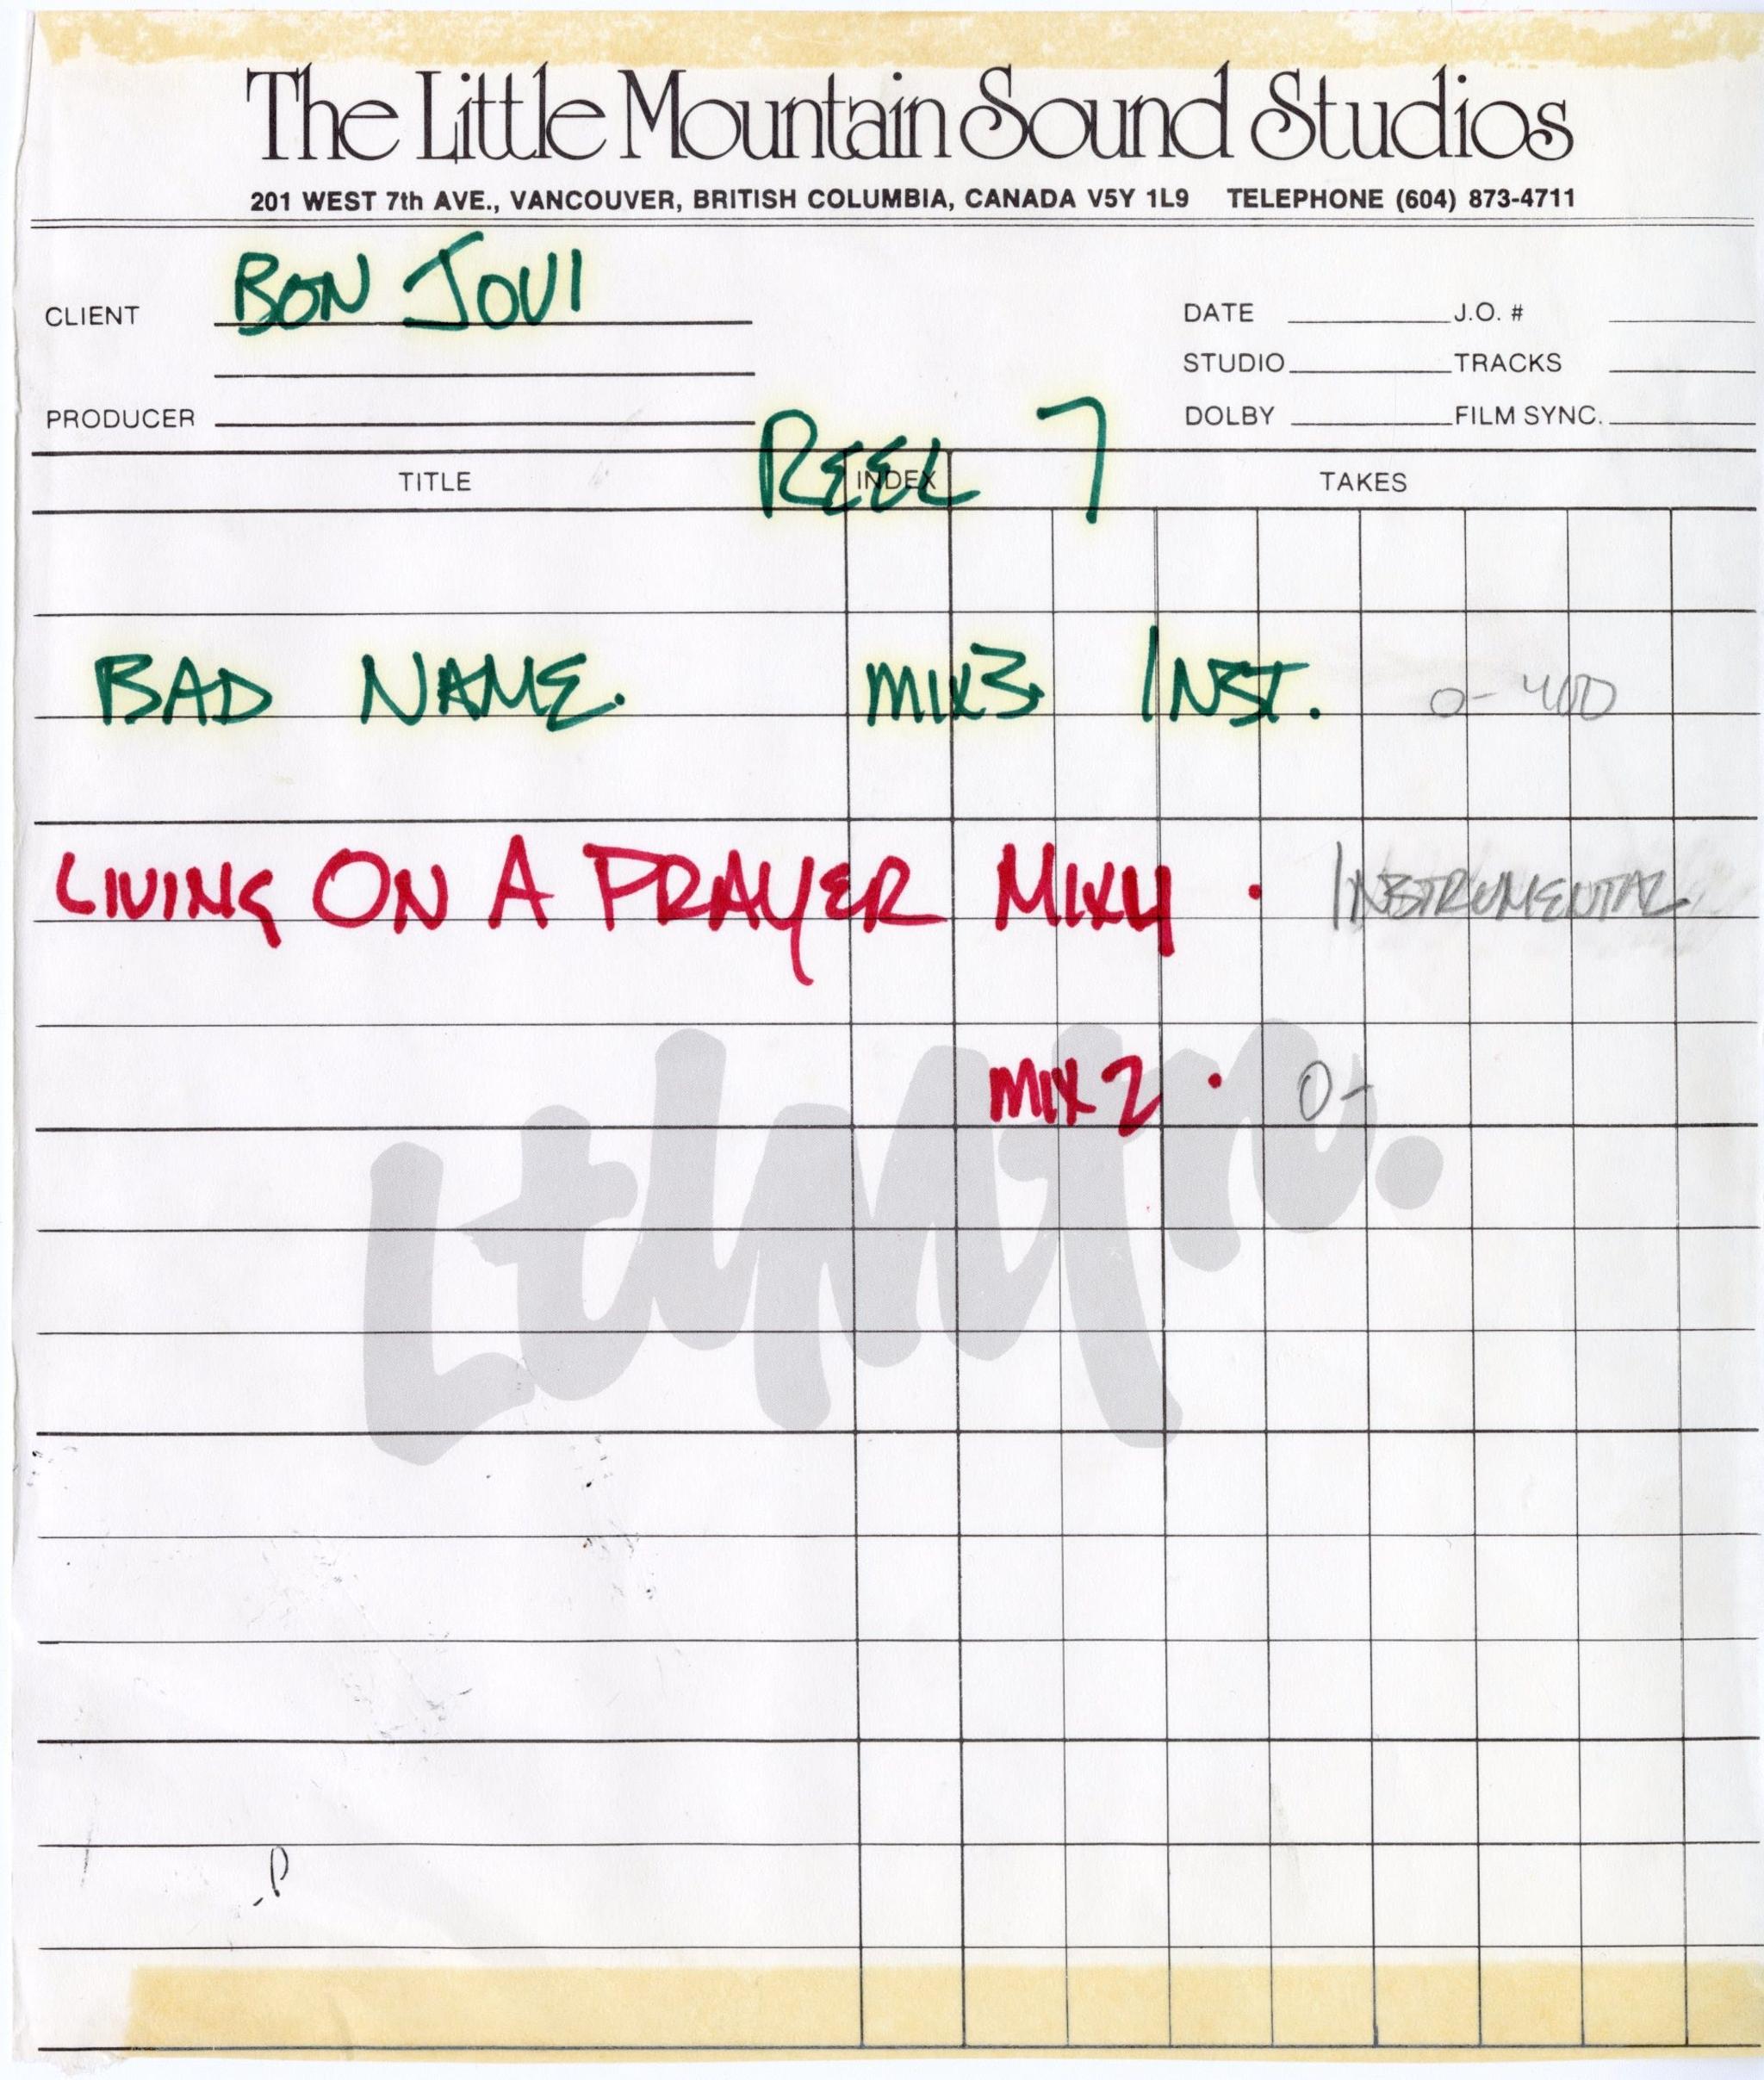 The Little Mountain Sound Studios
201 WEST 7th AVE., VANCOUVER, BRITISH COLUMBIA, CANADA V5Y 1L9 TELEPHONE (604) 873-4711
CLIENT BON JOVI DATE J.O. #
STUDIO TRACKS
PRODUCER DOLBY FILM SYNC.
REEL 7
TITLE INDEX TAKES
BAD NAME. MIX3 INST. 0-400
LIVING ON A PRAYER MIX4 · INSTRUMENTAL
MIX 2 · 0-
Ltlmtn.